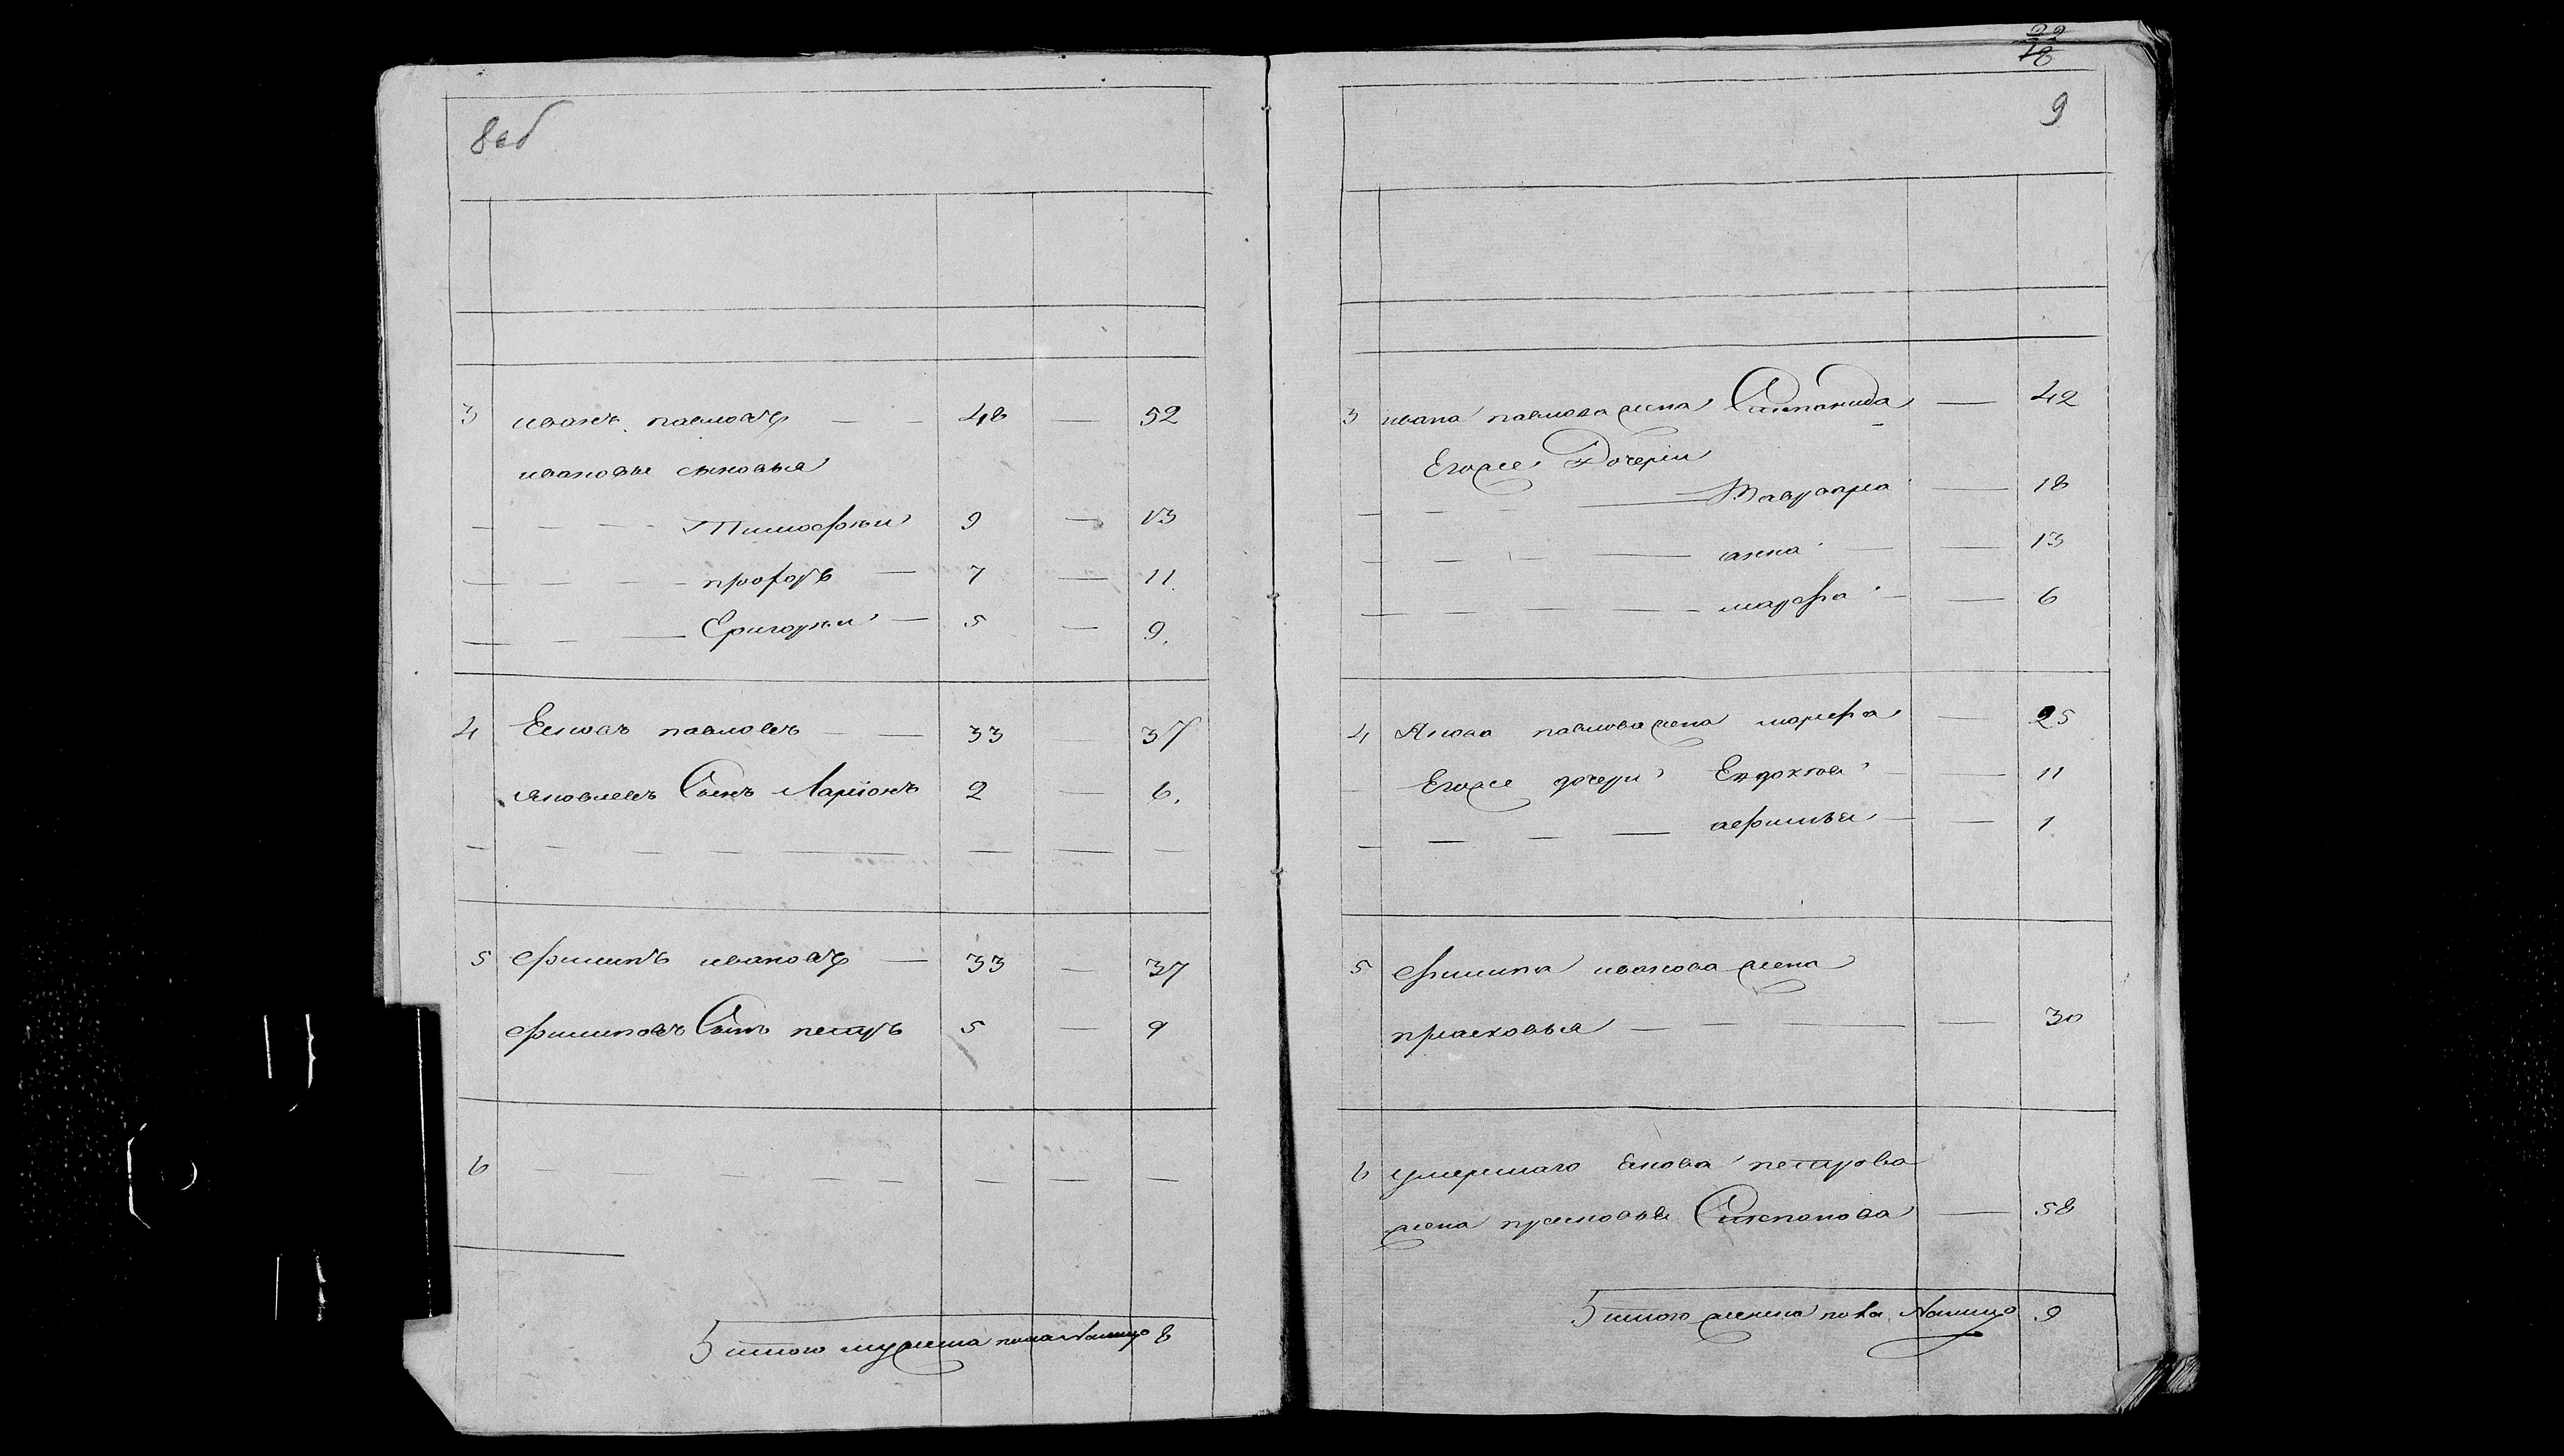 8об
3 иванъ павловъ — — 48 — 52
ивановы сыновья
— — — — Тимофѣи 9 — 13
— — — — профоръ — 7 — 11
— — — Григорѣи — 5 — 9.
4 Ековъ павловъ — — 33 — 37
яковлевъ Сынъ Ларiонъ 2 — 6.
— — — — — — — —
5 филипъ ивановъ — 33 — 37
филиповъ Сынъ петръ 5 — 9
6 — — — — — — — —
итого мужеска пола налицо 8
22
18
9
3 ивана павлова жена Степанида — 42
Егоже Дочери
— — — — Мавра — 18
— — — — анна — — 13
— — — — марфа — — 6
4 Якова павлова жена марфа — 25
— Егоже дочери Евдокея — — 11
— — — — афимья — — 1
5 филипа иванова жена
прасковья — — — — — 30
6 умершаго Якова петрова
жена прасковья Степанова — 58
итого женска пола Налицо 9